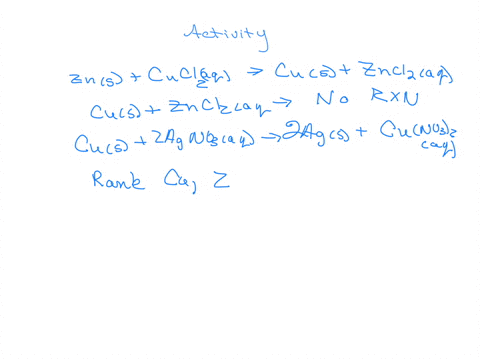 Activity
Zn(s) + CuCl2(aq) → Cu(s) + ZnCl2(aq)
Cu(s) + ZnCl2(aq → No RXN
Cu(s) + 2AgNO3(aq) → 2Ag(s) + Cu(NO3)2
(aq)
Rank Cu, Z